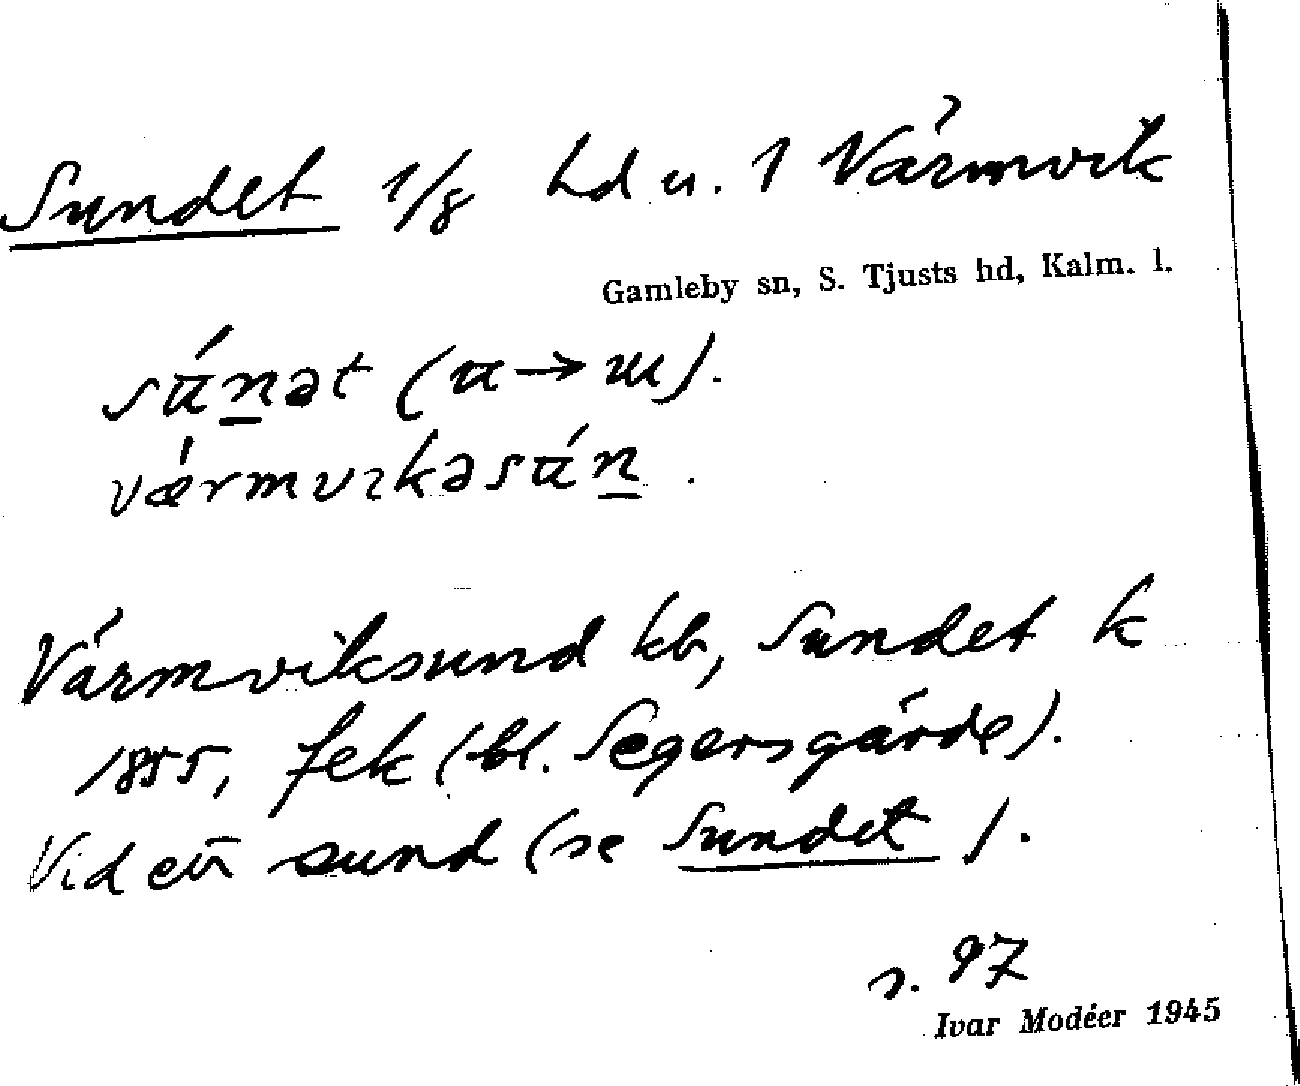 Sundet 1/8 hd u. 1 Värmvik
Gamleby sn, S. Tjusts hd, Kalm. l.
sú̵n̲ət (ʉ → ɯ).
vǽrmvɩkəsʉ́n̲.
Värmviksund kb, Sundet k
1855, fek (bl. Segersgärde).
Vid ett sund (se Sundet).
s. 97
Ivar Modéer 1945